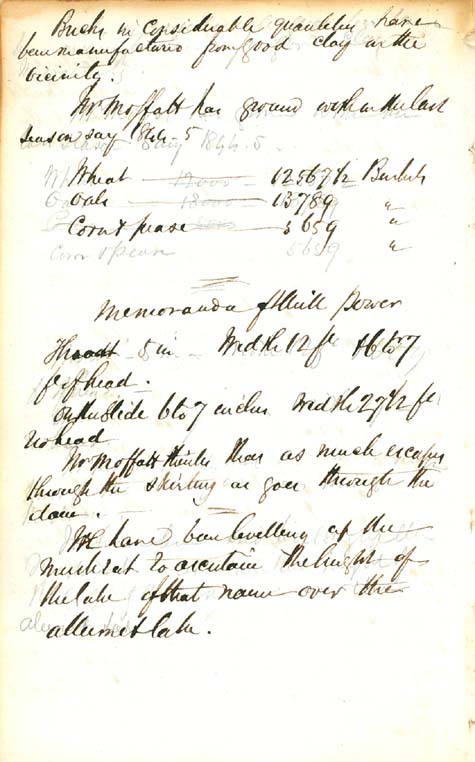 Bricks in considerable quantities have
been manufactured from good clay in the
vicinity.
Mr Moffatt has ground with in the last
season say 1844-5
Wheat — 12567½ Bushels
Oats — 13789 "
Corn & pease — 5659 "
Memoranda of Mill Power
5 in Width 12 ft 6 to 7
ft of head.
On the Slide 6 to 7 inches Width 27½ ft
no head
Mr Moffatt thinks that as much escapes
through the skirting as goes through the
dam.
We have been levelling up the
muskrat to ascertain the height of
the lake of that name over the
allumet lake.